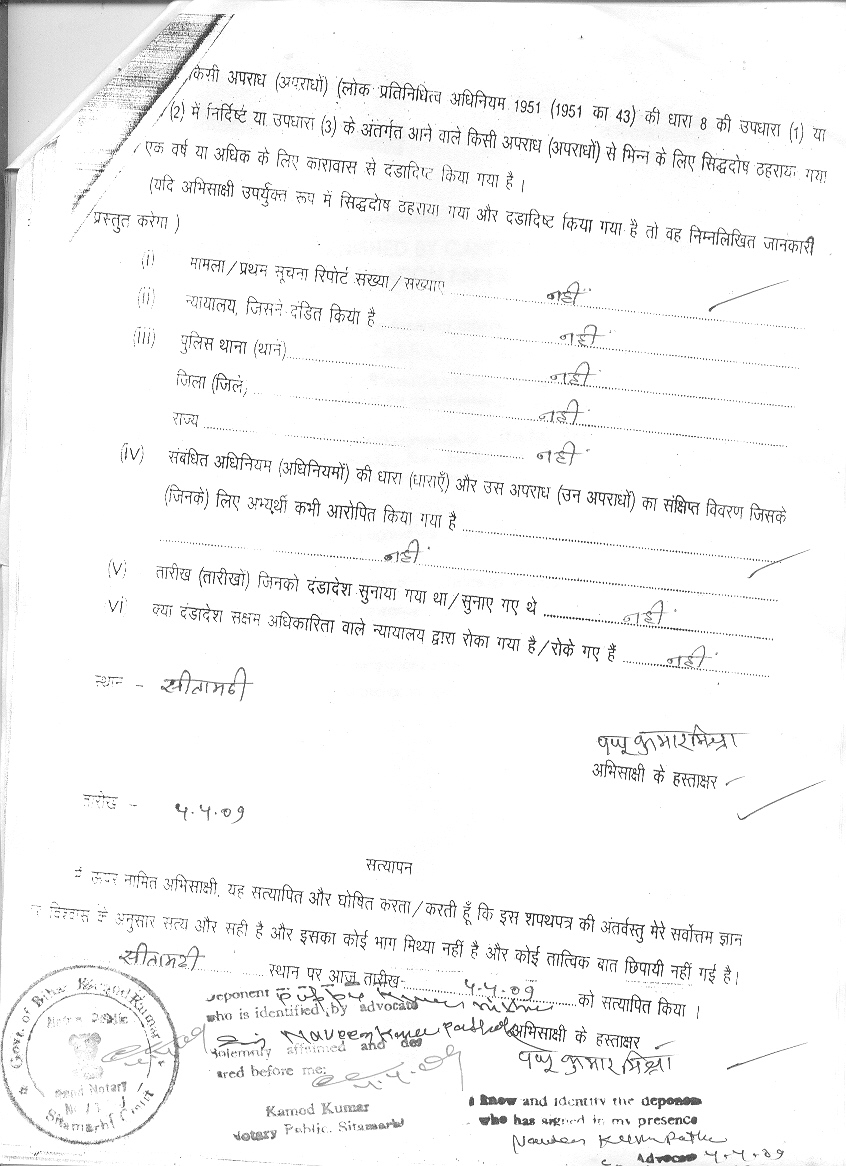 किसी अपराध (अपराधों) (लोक प्रतिनिधित्व अधिनियम 1951 (1951 का 43) की धारा 8 की उपधारा (1) या
(2) में निर्दिष्ट या उपधारा (3) के अंतर्गत आने वाले किसी अपराध (अपराधों) से भिन्न के लिए सिद्धदोष ठहराया गया
एक वर्ष या अधिक के लिए कारावास से दंडादिष्ट किया गया है ।
(यदि अभिसाक्षी उपर्युक्त रूप में सिद्धदोष ठहराया गया और दडादिष्ट किया गया है तो वह निम्नलिखित जानकारी
प्रस्तुत करेगा )
(i) मामला/प्रथम सूचना रिपोर्ट संख्या/सख्याए नहीं
(ii) न्यायालय, जिसने दंडित किया है नहीं
(iii) पुलिस थाना (थाने) नहीं
जिला (जिले) नहीं
राज्य नहीं
(iv) संबंधित अधिनियम (अधिनियमों) की धारा (धाराएँ) और उस अपराध (उन अपराधों) का संक्षिप्त विवरण जिसके
(जिनके) लिए अभ्यर्थी कभी आरोपित किया गया है
नहीं
(v) तारीख (तारीखों) जिनको दंडादेश सुनाया गया था/सुनाए गए थे नहीं
vi क्या दंडादेश सक्षम अधिकारिता वाले न्यायालय द्वारा रोका गया है/रोके गए हैं नहीं
स्थान - सीतामढी
पप्पू कुमार मिश्रा
अभिसाक्षी के हस्ताक्षर
तारीख - ४.४.०९
सत्यापन
मैं ऊपर नामित अभिसाक्षी, यह सत्यापित और घोषित करता/करती हूँ कि इस शपथपत्र की अंतर्वस्तु मेरे सर्वोत्तम ज्ञान
विश्वास के अनुसार सत्य और सही है और इसका कोई भाग मिथ्या नहीं है और कोई तात्विक बात छिपायी नहीं गई है।
सीतामढी स्थान पर आज तारीख- ४.४.०९ को सत्यापित किया ।
Deponent Pappu Kumar Mishra
who is identified by advocate
Sri Naveen Kumar Pathak
अभिसाक्षी के हस्ताक्षर
पप्पू कुमार मिश्रा
solemnly affirmed and dec
ared before me:
४.४.०९
Kamod Kumar
Notary Public, Sitamarhi
I know and identify the deponen
who has signed in my presence
Naveen Kumar Pathak
Advocate ४.४.०९
Govt. of Bihar
Notary Public
Sitamarhi